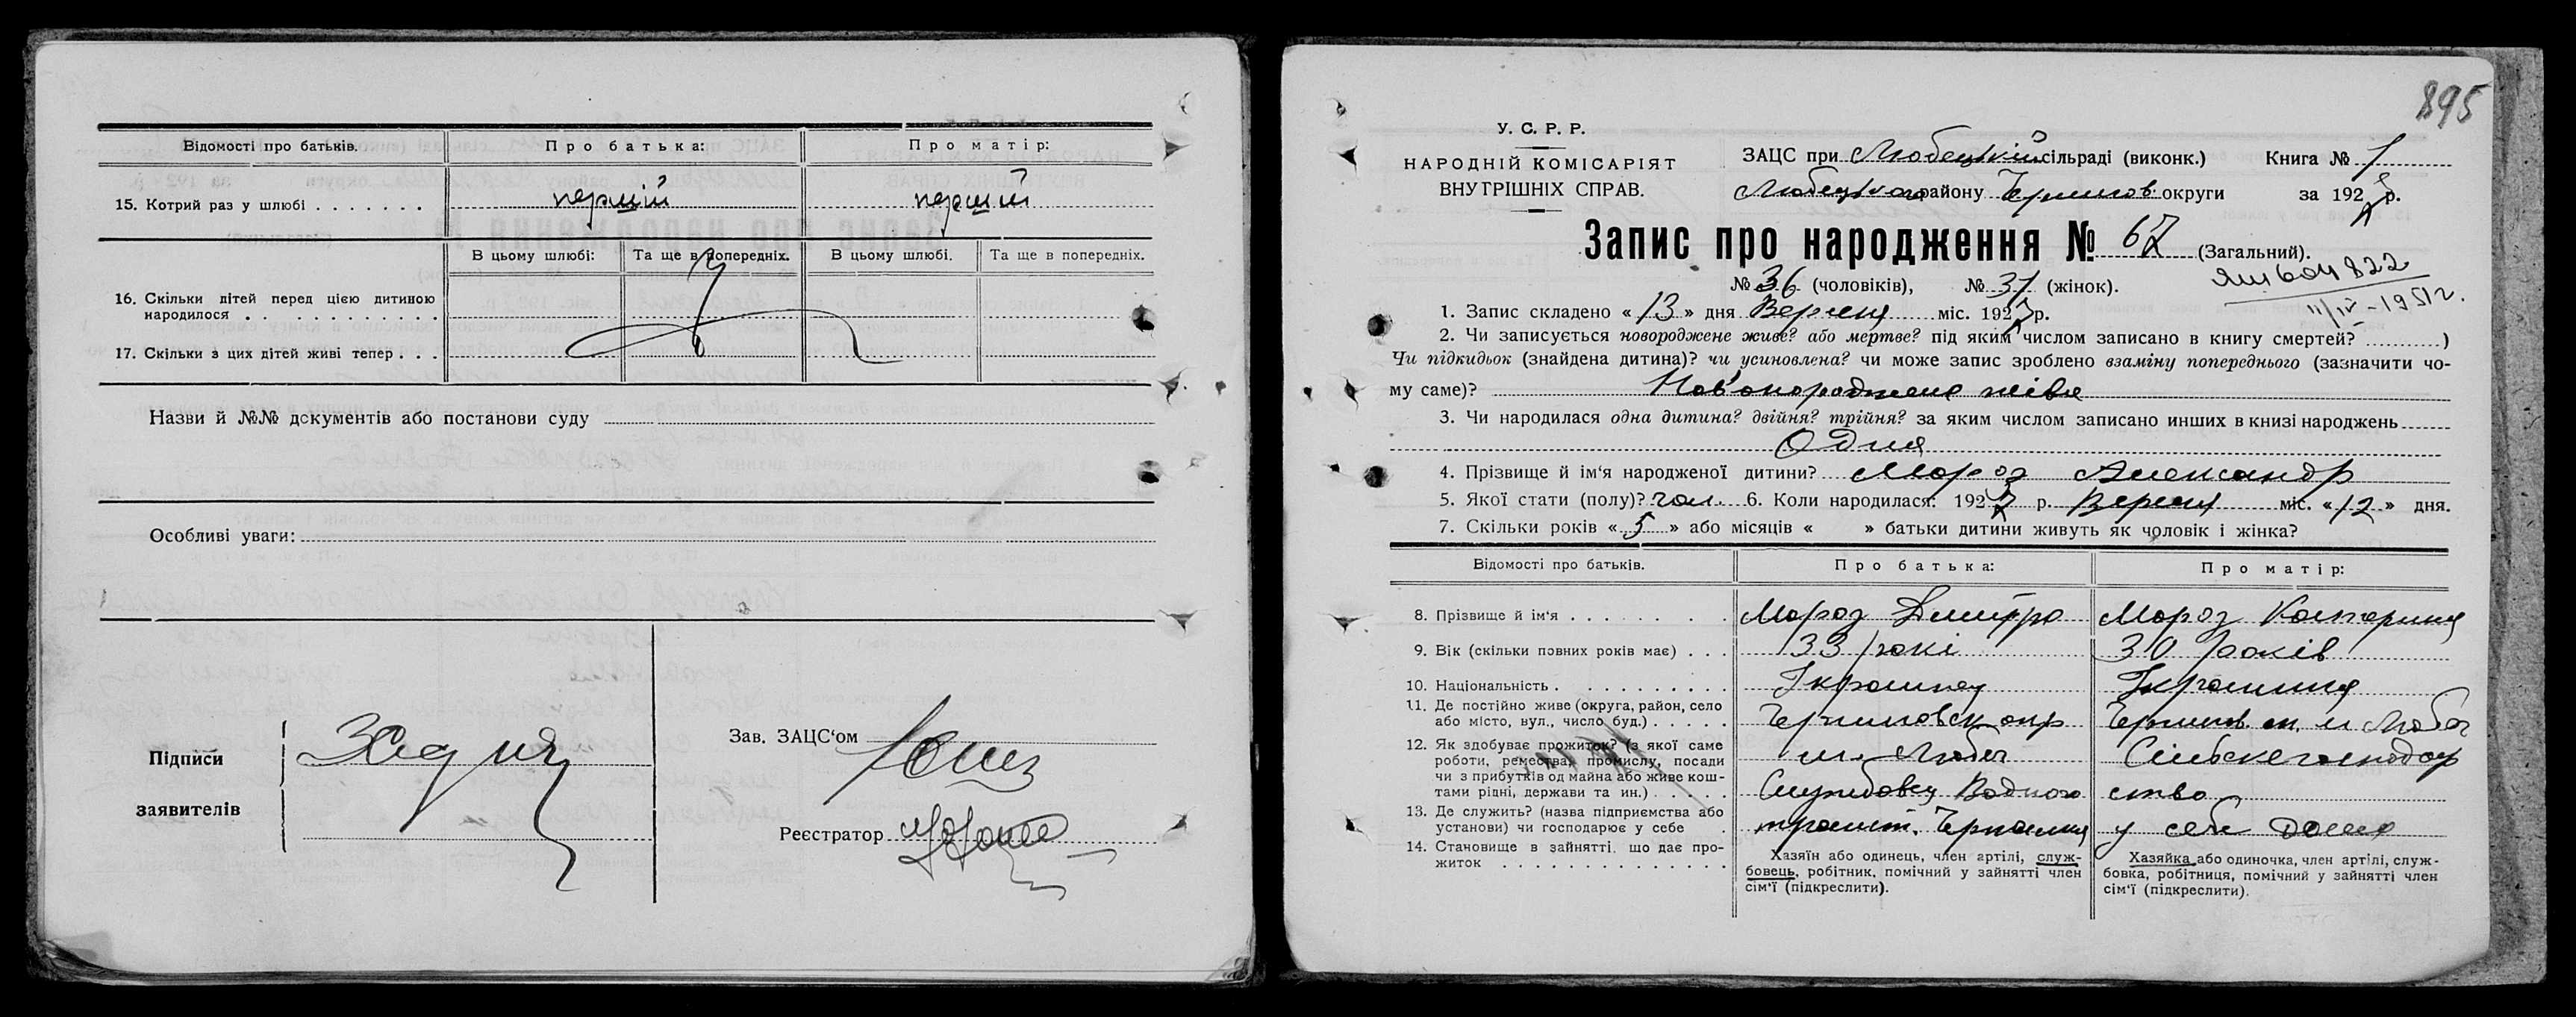 Відомості про батьків.
Про батька:
Про матір:
15. Котрий раз у шлюбі
першій
першій
В цьому шлюбі:
Та ще в попередніх.
В цьому шлюбі.
Та ще в попередніх.
16. Скільки дітей перед цією дитиною
народилося
17. Скільки з цих дітей живі тепер
Назви й №№ документів або постанови суду
Особливі уваги:
Підписи
заявителів
Зав. ЗАЦС‘ом
Реєстратор
895
У. С. Р. Р.
НАРОДНІЙ КОМІСАРІЯТ
ВНУТРІШНІХ СПРАВ.
ЗАЦС при Любецькій сільраді (виконк.) Книга № 1
Любецького району Чернигов округи за 192 р.
Запис про народження № 67 (Загальний).
№ 36 (чоловіків), № 31 (жінок).
604822
11/IV-1951г.
1. Запис складено «13» дня Вересня міс. 192 р.
2. Чи записується новороджене живе? або мертве? під яким числом записано в книгу смертей? )
Чи підкидьок (знайдена дитина)? чи усиновлена? чи може запис зроблено взаміну попереднього (зазначити чо-
му саме)? Нов'онороджене
3. Чи народилася одна дитина? двійня? трійня? за яким числом записано инших в книзі народжень
Одна
4. Прізвище й ім‘я народженої дитини? Мороз Александр
5. Якої стати (полу)? чол. 6. Коли народилася: 192 р. Вересня міс. «12» дня.
7. Скільки років «5» або місяців « » батьки дитини живуть як чоловік і жінка?
Відомості про батьків.
Про батька:
Про матір:
8. Прізвище й ім‘я
Мороз Дмитро
Мороз Катерина
9. Вік (скільки повних років має)
33 рокі
30 років
10. Національність
Українец
Українка
11. Де постійно живе (округа, район, село
або місто, вул., число буд.)
Черниговск окр
м. Любеч
Чернигов. ок. м Любеч
12. Як здобуває прожиток? (з якої саме
роботи, ремества, промислу, посади
чи з прибутків од майна або живе кош-
тами рідні, держави та ин.)
Службовец Водного
Сільске господар
ство
13. Де служить? (назва підприємства або
установи) чи господарює у себе
у себе дома
14. Становище в зайнятті, що дає про-
житок
Хазяїн або одинець, член артілі, служ-
бовець, робітник, помічний у зайнятті член
сім‘ї (підкреслити).
Хазяйка або одиночка, член артілі, служ-
бовка, робітниця, помічний у зайнятті член
сім‘ї (підкреслити).